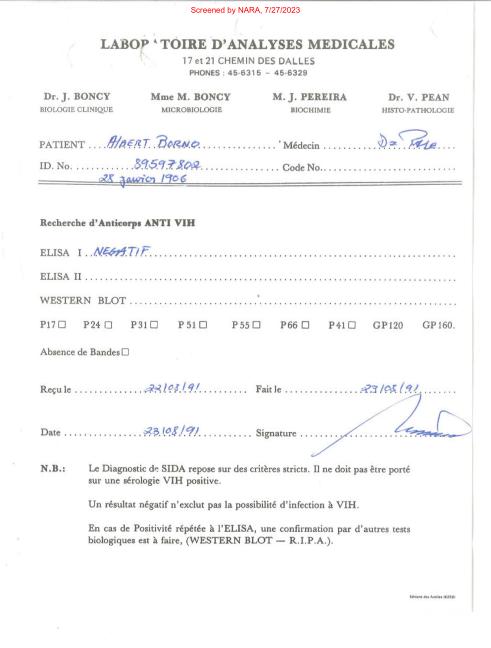 Screened by NARA, 7/27/2023
LABOR TOIRE D'ANALYSES MEDICALES
17 et 21 CHEMIN DES DALLES
PHONES : 45-6315 - 45-6329
Dr. J. BONCY Mme M. BONCY M. J. PEREIRA Dr. V. PEAN
BIOLOGIE CLINIQUE MICROBIOLOGIE BIOCHIMIE HISTO-PATHOLOGIE
PATIENT ... Albert Borno ... Médecin ... Dr
ID. No. ... 89597802 ... Code No. ...
28 janvier 1906
Recherche d'Anticorps ANTI VIH
ELISA I .. NEGATIF ...
ELISA II ...
WESTERN BLOT ...
P17 □ P24 □ P31 □ P51 □ P55 □ P66 □ P41 □ GP120 GP160.
Absence de Bandes □
Reçu le ... 22/08/91 ... Fait le ... 23/08/91 ...
Date ... 23/08/91 ... Signature ...
N.B.: Le Diagnostic de SIDA repose sur des critères stricts. Il ne doit pas être porté
sur une sérologie VIH positive.
Un résultat négatif n'exclut pas la possibilité d'infection à VIH.
En cas de Positivité répétée à l'ELISA, une confirmation par d'autres tests
biologiques est à faire, (WESTERN BLOT — R.I.P.A.).